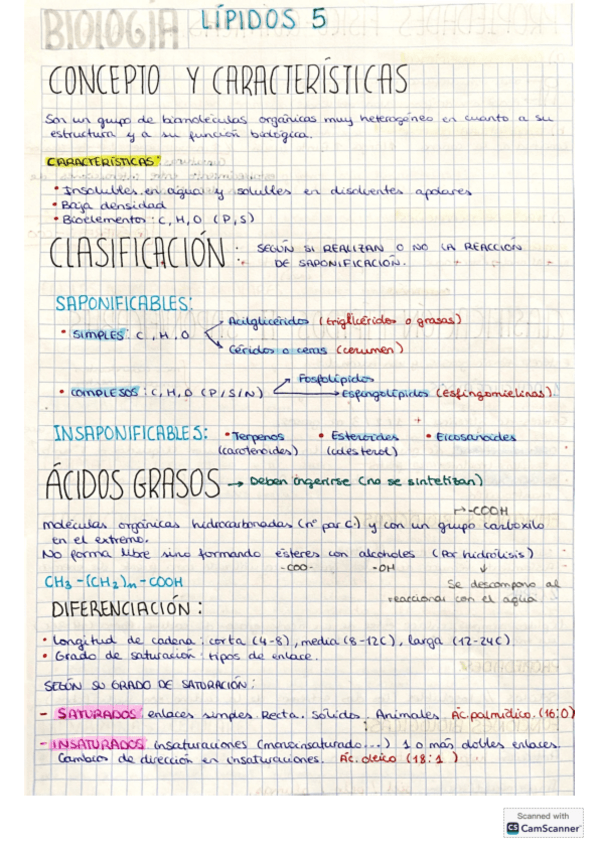 BIOLOGÍA LÍPIDOS 5
CONCEPTO Y CARACTERÍSTICAS
Son un grupo de biomoléculas orgánicas muy heterogéneo en cuanto a su
estructura y a su función biológica.
CARACTERÍSTICAS:
• Insolubles en agua y solubles en disolventes apolares
• Baja densidad
• Bioelementos: C, H, O (P, S)
CLASIFICACIÓN: SEGÚN SI REALIZAN O NO LA REACCIÓN
DE SAPONIFICACIÓN.
SAPONIFICABLES:
Acilglicéridos (triglicéridos o grasas)
• SIMPLES: C, H, O
Céridos o ceras (cerumen)
Fosfolípidos
• COMPLESOS: C, H, O (P/S/N) Esfingolípidos (esfingomielinas)
INSAPONIFICABLES: • Terpenos • Esteroides • Eicosanoides
(carotenoides) (colesterol)
ÁCIDOS GRASOS → Deben ingerirse (no se sintetizan)
→-COOH
moléculas orgánicas hidrocarbonadas (nº par C.) y con un grupo carboxilo
en el extremo.
No forma libre sino formando ésteres con alcoholes (Por hidrólisis)
-COO- -OH ↓
CH3-(CH2)n-COOH Se descompone al
reaccionar con el agua
DIFERENCIACIÓN:
• Longitud de cadena: corta (4-8), media (8-12C), larga (12-24C)
• Grado de saturación: tipos de enlace.
SEGÚN SU GRADO DE SATURACIÓN:
- SATURADOS enlaces simples. Recta. Sólidos. Animales Ác. palmítico. (16:0)
- INSATURADOS insaturaciones (monoinsaturado...) 1 o más dobles enlaces.
Cambios de dirección en insaturaciones. Ác. oleico (18:1)
Scanned with
CS CamScanner